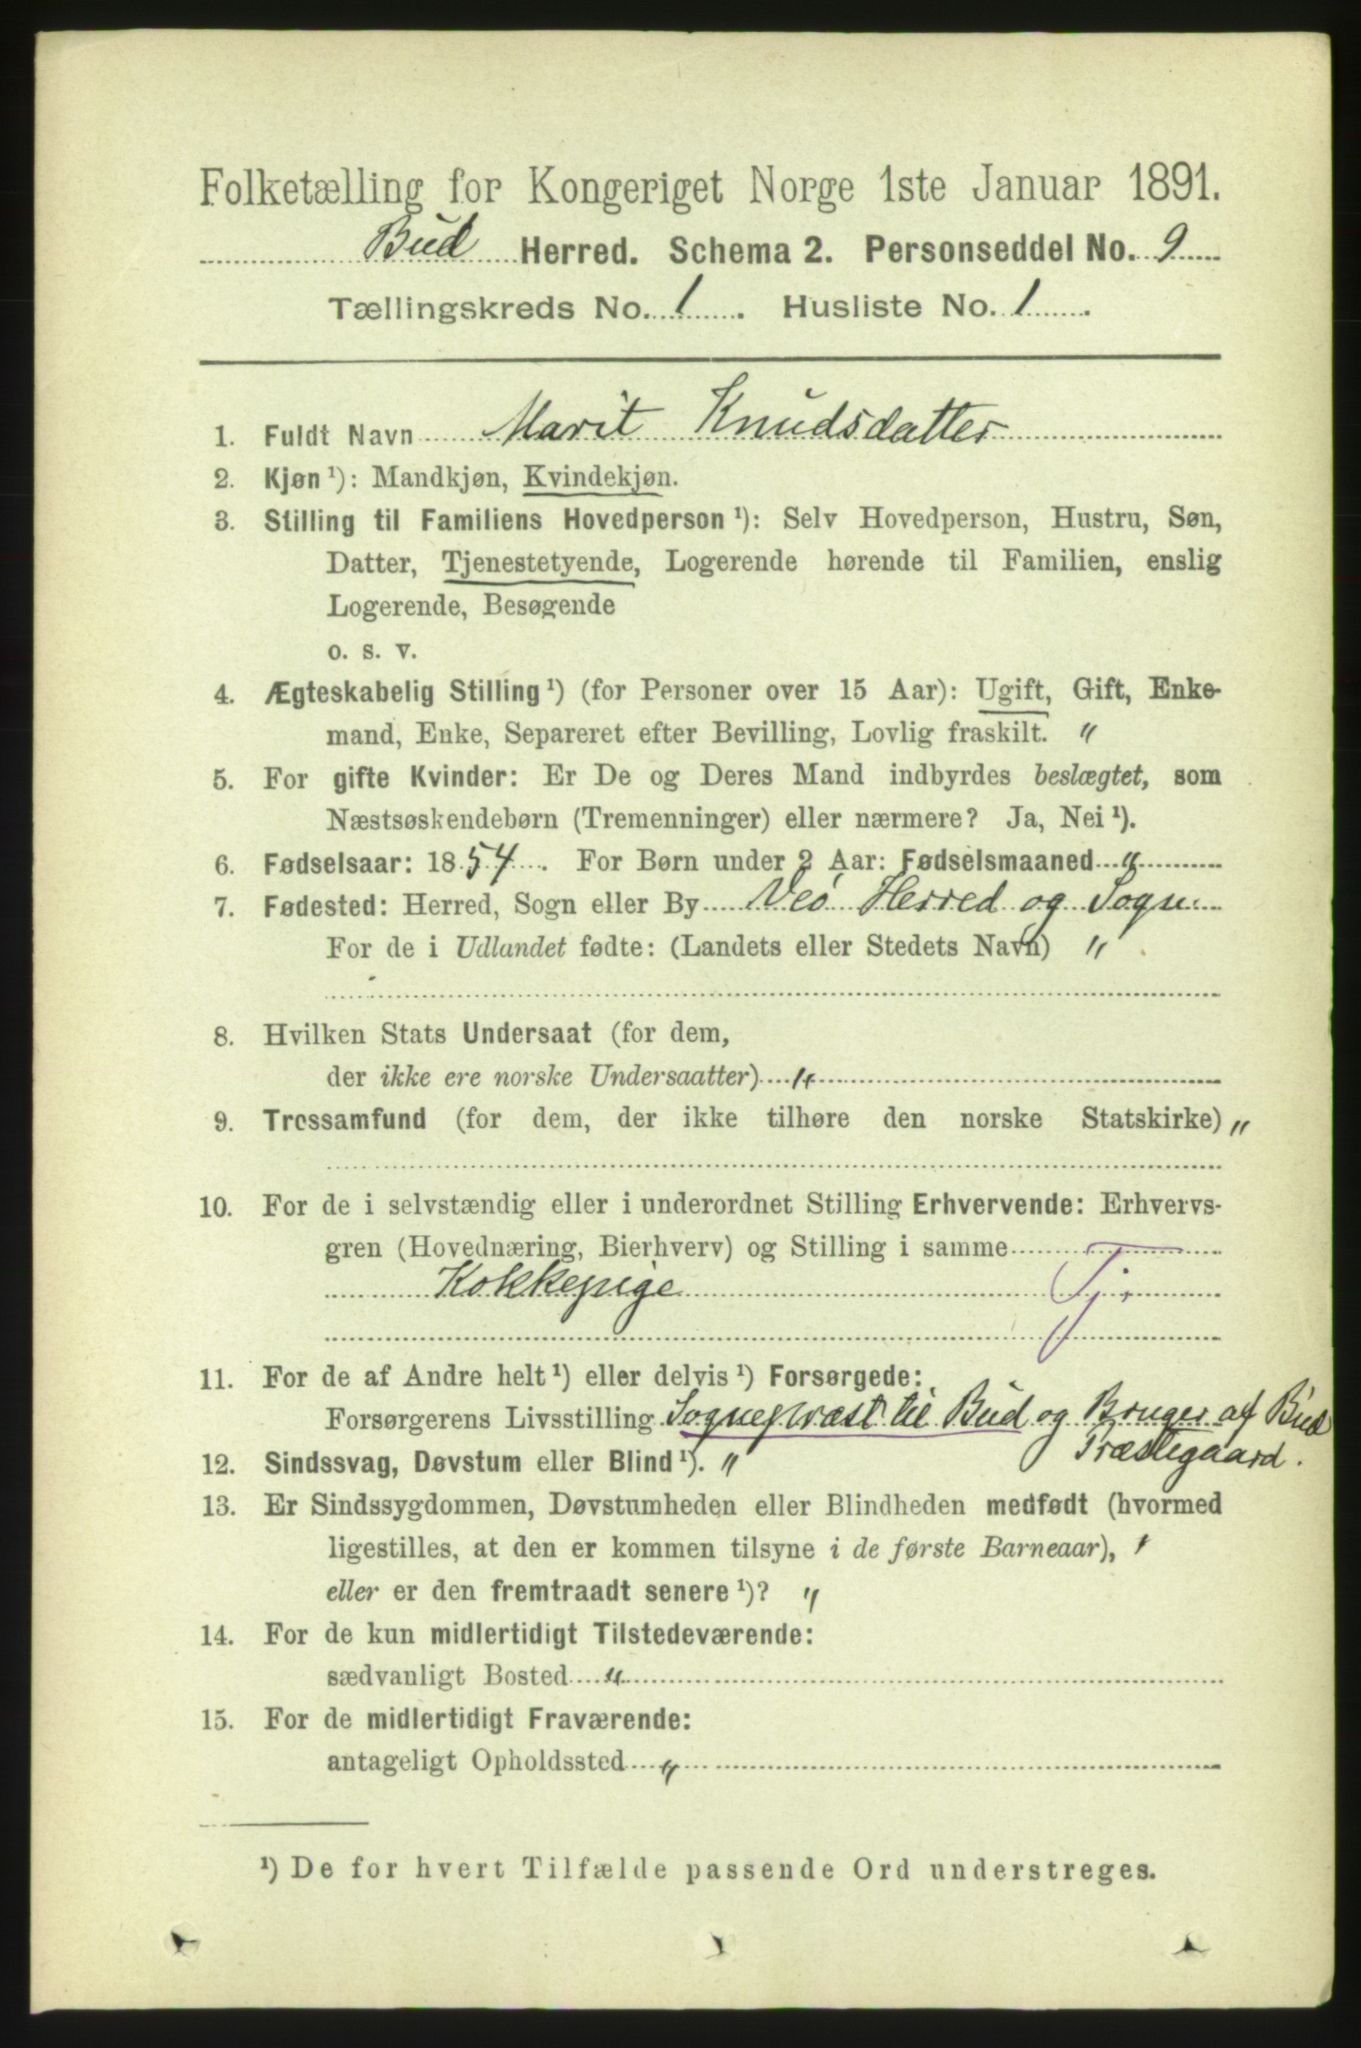 Folketælling for Kongeriget Norge 1ste Januar 1891.
Bud Herred. Schema 2. Personseddel No. 9
Tællingskreds No. 1. Husliste No. 1.
1. Fuldt Navn Marit Knudsdatter
2. Kjøn ¹): Mandkjøn, Kvindekjøn.
3. Stilling til Familiens Hovedperson ¹): Selv Hovedperson, Hustru, Søn,
Datter, Tjenestetyende, Logerende hørende til Familien, enslig
Logerende, Besøgende
o. s. v.
4. Ægteskabelig Stilling ¹) (for Personer over 15 Aar): Ugift, Gift, Enke-
mand, Enke, Separeret efter Bevilling, Lovlig fraskilt. "
5. For gifte Kvinder: Er De og Deres Mand indbyrdes beslægtet, som
Næstsøskendebørn (Tremenninger) eller nærmere? Ja, Nei ¹).
6. Fødselsaar: 1854. For Børn under 2 Aar: Fødselsmaaned "
7. Fødested: Herred, Sogn eller By Veø Herred og Sogn
For de i Udlandet fødte: (Landets eller Stedets Navn) "
8. Hvilken Stats Undersaat (for dem,
der ikke ere norske Undersaatter) "
9. Trossamfund (for dem, der ikke tilhøre den norske Statskirke) "
10. For de i selvstændig eller i underordnet Stilling Erhvervende: Erhvervs-
gren (Hovednæring, Bierhverv) og Stilling i samme
Kokkepige Tj.
11. For de af Andre helt ¹) eller delvis ¹) Forsørgede:
Forsørgerens Livsstilling Sognepræst til Bud og Bruger af Bud
Præstegaard.
12. Sindssvag, Døvstum eller Blind ¹). "
13. Er Sindssygdommen, Døvstumheden eller Blindheden medfødt (hvormed
ligestilles, at den er kommen tilsyne i de første Barneaar), "
eller er den fremtraadt senere ¹)? "
14. For de kun midlertidigt Tilstedeværende:
sædvanligt Bosted "
15. For de midlertidigt Fraværende:
antageligt Opholdssted "
¹) De for hvert Tilfælde passende Ord understreges.